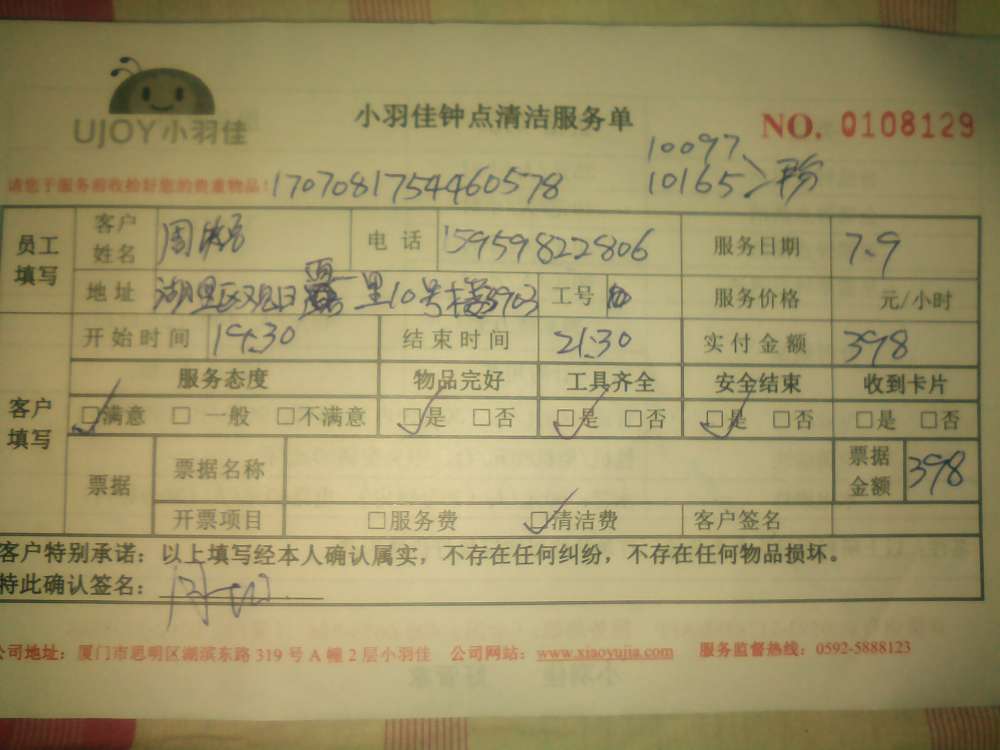 UJOY小羽佳
小羽佳钟点清洁服务单
NO. 0108129
10097
10165
请您于服务前收拾好您的贵重物品! 1707081754460578
员工填写 客户姓名 周 电话 15959822806 服务日期 7.9
地址 湖里区观日 里10号楼3903 工号 服务价格 元/小时
客户填写 开始时间 19:30 结束时间 21:30 实付金额 398
服务态度 物品完好 工具齐全 安全结束 收到卡片
□满意 □一般 □不满意 □是 □否 □是 □否 □是 □否 □是 □否
票据 票据名称 票据金额 398
开票项目 □服务费 □清洁费 客户签名
客户特别承诺:以上填写经本人确认属实,不存在任何纠纷,不存在任何物品损坏。
特此确认签名:
公司地址:厦门市思明区湖滨东路 319 号 A 幢 2 层小羽佳 公司网站:www.xiaoyujia.com 服务监督热线:0592-5888123